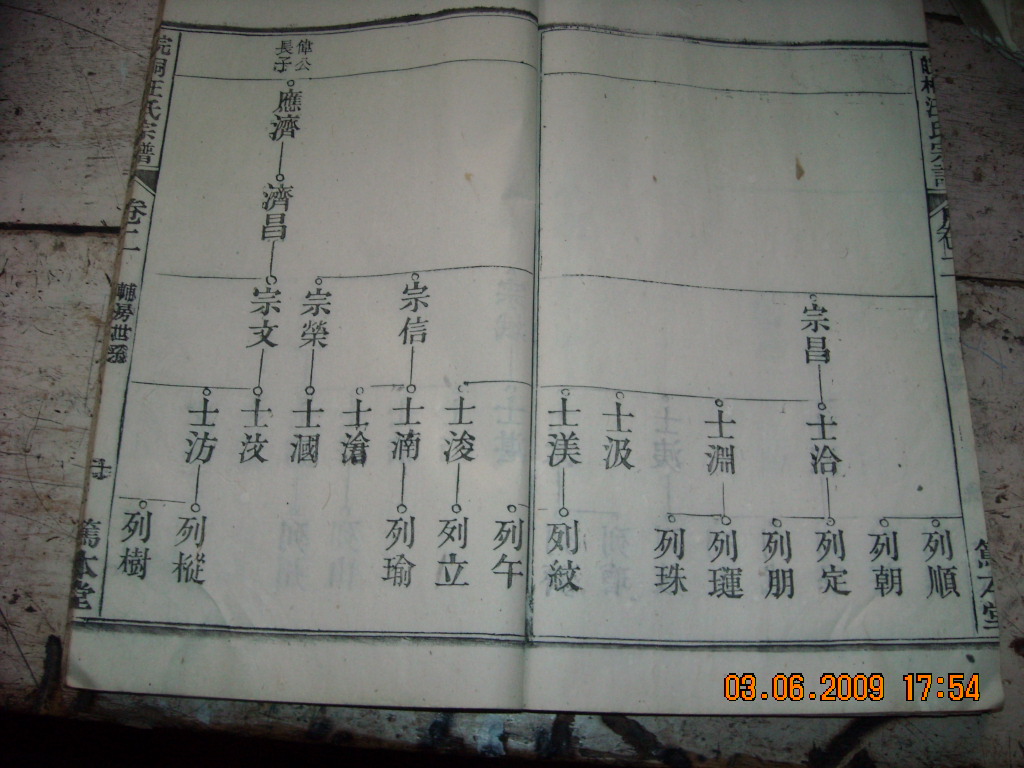 汪氏宗譜
卷二
篤本堂
宗昌
士洽
士淵
士汲
士渼
列順
列朝
列定
列朋
列璉
列珠
列紋
偉公
長子
應濟
濟昌
宗信
宗榮
宗文
士浚
士湳
士滄
士國
士汶
士汸
列午
列立
列瑜
列樅
列樹
皖桐汪氏宗譜
卷二
輔房世系
篤本堂
03.06.2009 17:54